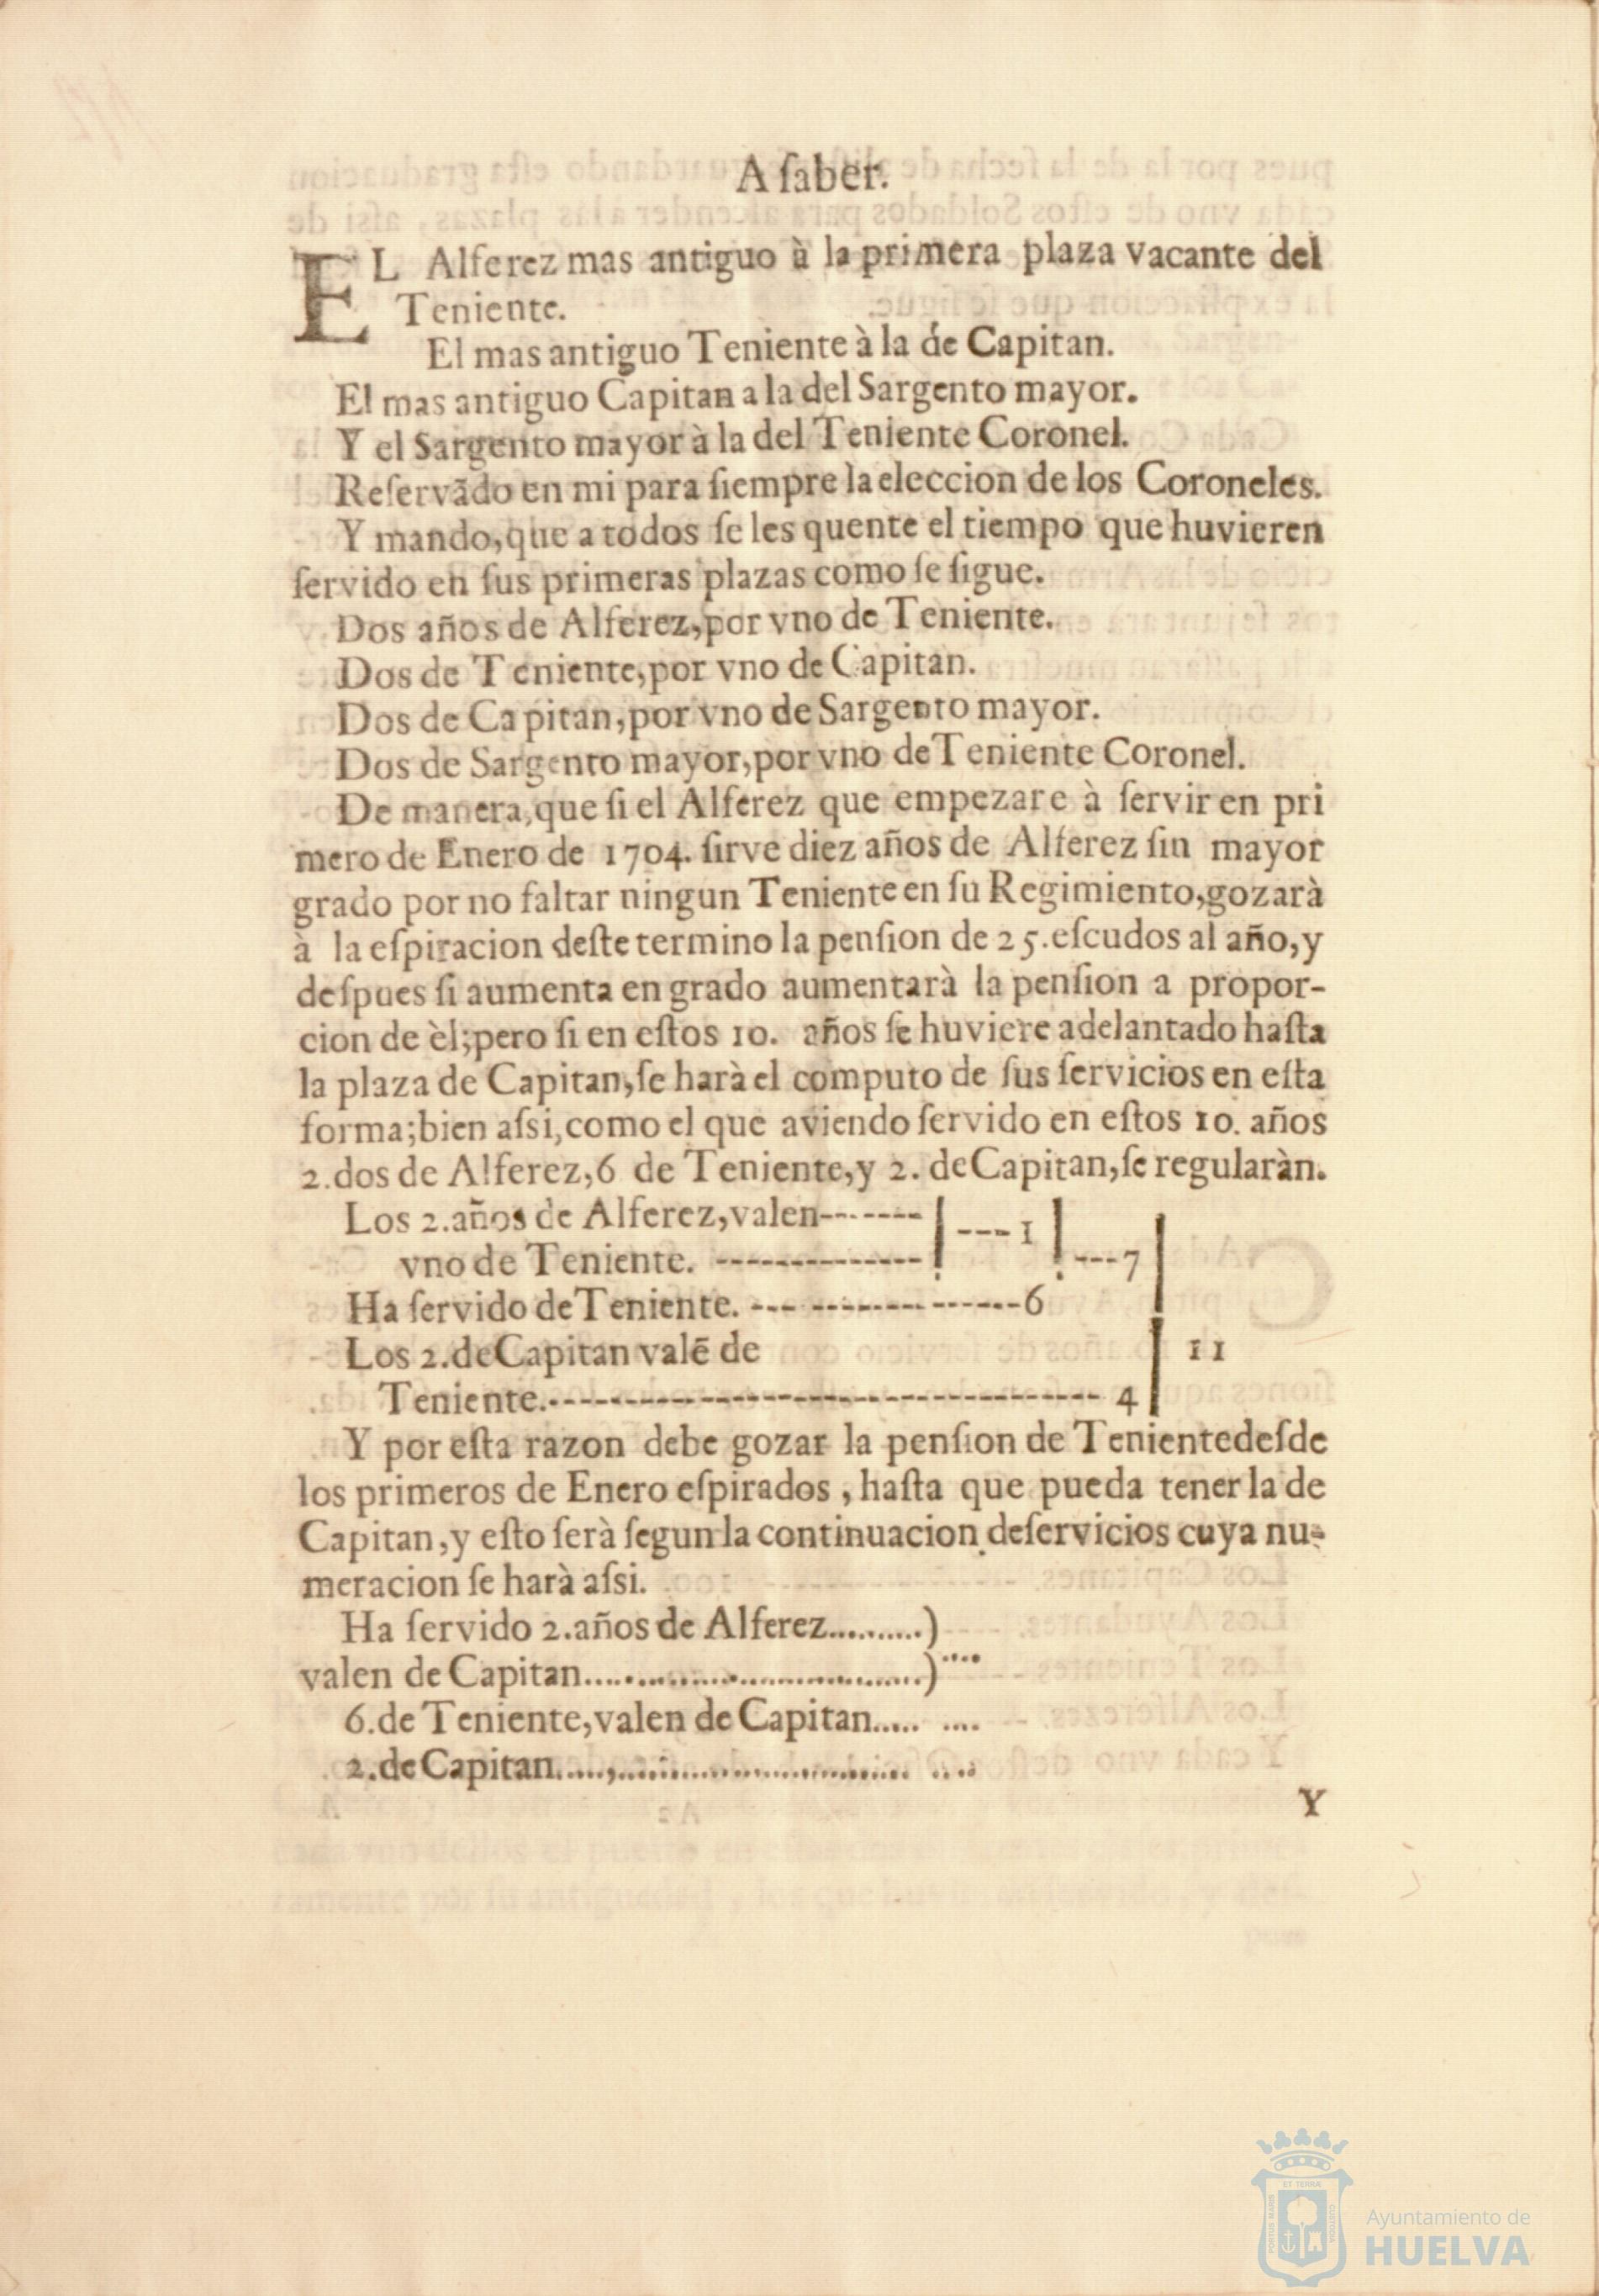 A ſaber.
EL Alferez mas antiguo à la primera plaza vacante del
Teniente.
El mas antiguo Teniente à la de Capitan.
El mas antiguo Capitan a la del Sargento mayor.
Y el Sargento mayor à la del Teniente Coronel.
Reſervādo en mi para ſiempre la eleccion de los Coroneles.
Y mando, que a todos ſe les quente el tiempo que huvieren
ſervido en ſus primeras plazas como ſe ſigue.
Dos años de Alferez, por vno de Teniente.
Dos de Teniente, por vno de Capitan.
Dos de Capitan, por vno de Sargento mayor.
Dos de Sargento mayor, por vno de Teniente Coronel.
De manera, que ſi el Alferez que empezare à ſervir en pri
mero de Enero de 1704. ſirve diez años de Alferez ſin mayor
grado por no faltar ningun Teniente en ſu Regimiento, gozarà
à la eſpiracion deſte termino la penſion de 25. eſcudos al año, y
deſpues ſi aumenta en grado aumentarà la penſion a propor-
cion de èl; pero ſi en eſtos 10. años ſe huviere adelantado haſta
la plaza de Capitan, ſe harà el computo de ſus ſervicios en eſta
forma; bien aſsi, como el que aviendo ſervido en eſtos 10. años
2. dos de Alferez, 6 de Teniente, y 2. de Capitan, ſe regularàn.
Los 2. años de Alferez, valen-------| ---1|
vno de Teniente. --------------| ---7|
Ha ſervido de Teniente. --- -------- ------6
Los 2. de Capitan valē de | 11
Teniente.------------------------------------ 4|
Y por eſta razon debe gozar la penſion de Teniente deſde
los primeros de Enero eſpirados, haſta que pueda tener la de
Capitan, y eſto ſerà ſegun la continuacion de ſervicios cuya nu-
meracion ſe harà aſsi.
Ha ſervido 2. años de Alferez..........)
valen de Capitan..............................)....
6. de Teniente, valen de Capitan..... ....
2. de Capitan................................ ....
Y
ET TERRÆ
PORTUS MARIS
CUSTODIA
Ayuntamiento de
HUELVA